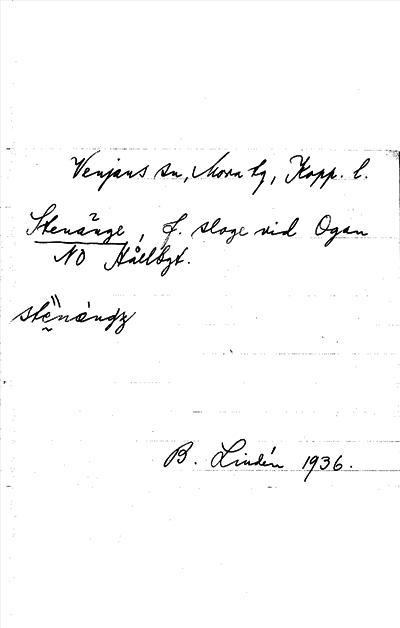 Venjans sn, Mora tg, Kopp. l.
Stenänge, f. sloge vid Ogan
NO Hållbgt.
stenändz
B. Lindén 1936.